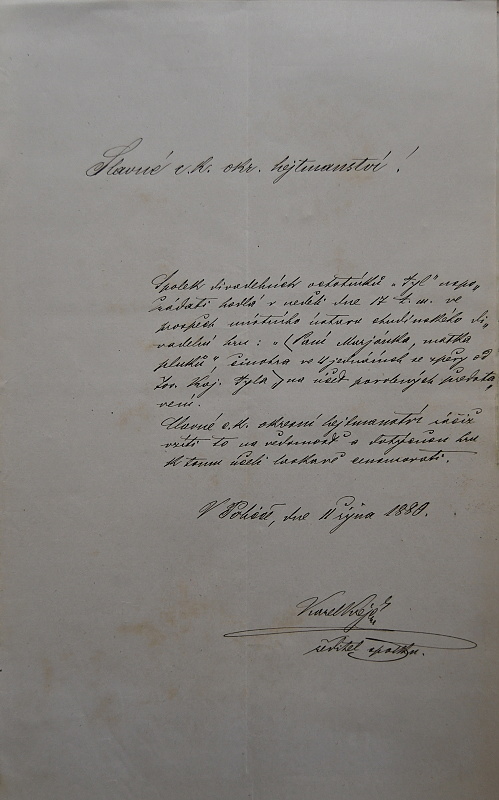 Slavné c. k. okr. hejtmanství!
Spolek divadelních ochotníků „Tyl“ uspo-
řádati hodlá v neděli dne 17 t. m. ve
prospěch místního ústavu chudinského di-
vadelní hru: „(Paní Marjánka, matka
pluků“, činohra ve 4 jednáních se zpěvy od
Jos. Kaj. Tyla) na účet povolených předsta-
vení.
Slavné c. k. okresní hejtmanství račiž
vzíti to na vědomost a dotyčnou hru
k tomu účeli laskavě cenzurovati.
V, dne 11 října 1880.
Karel
ředitel spolku.